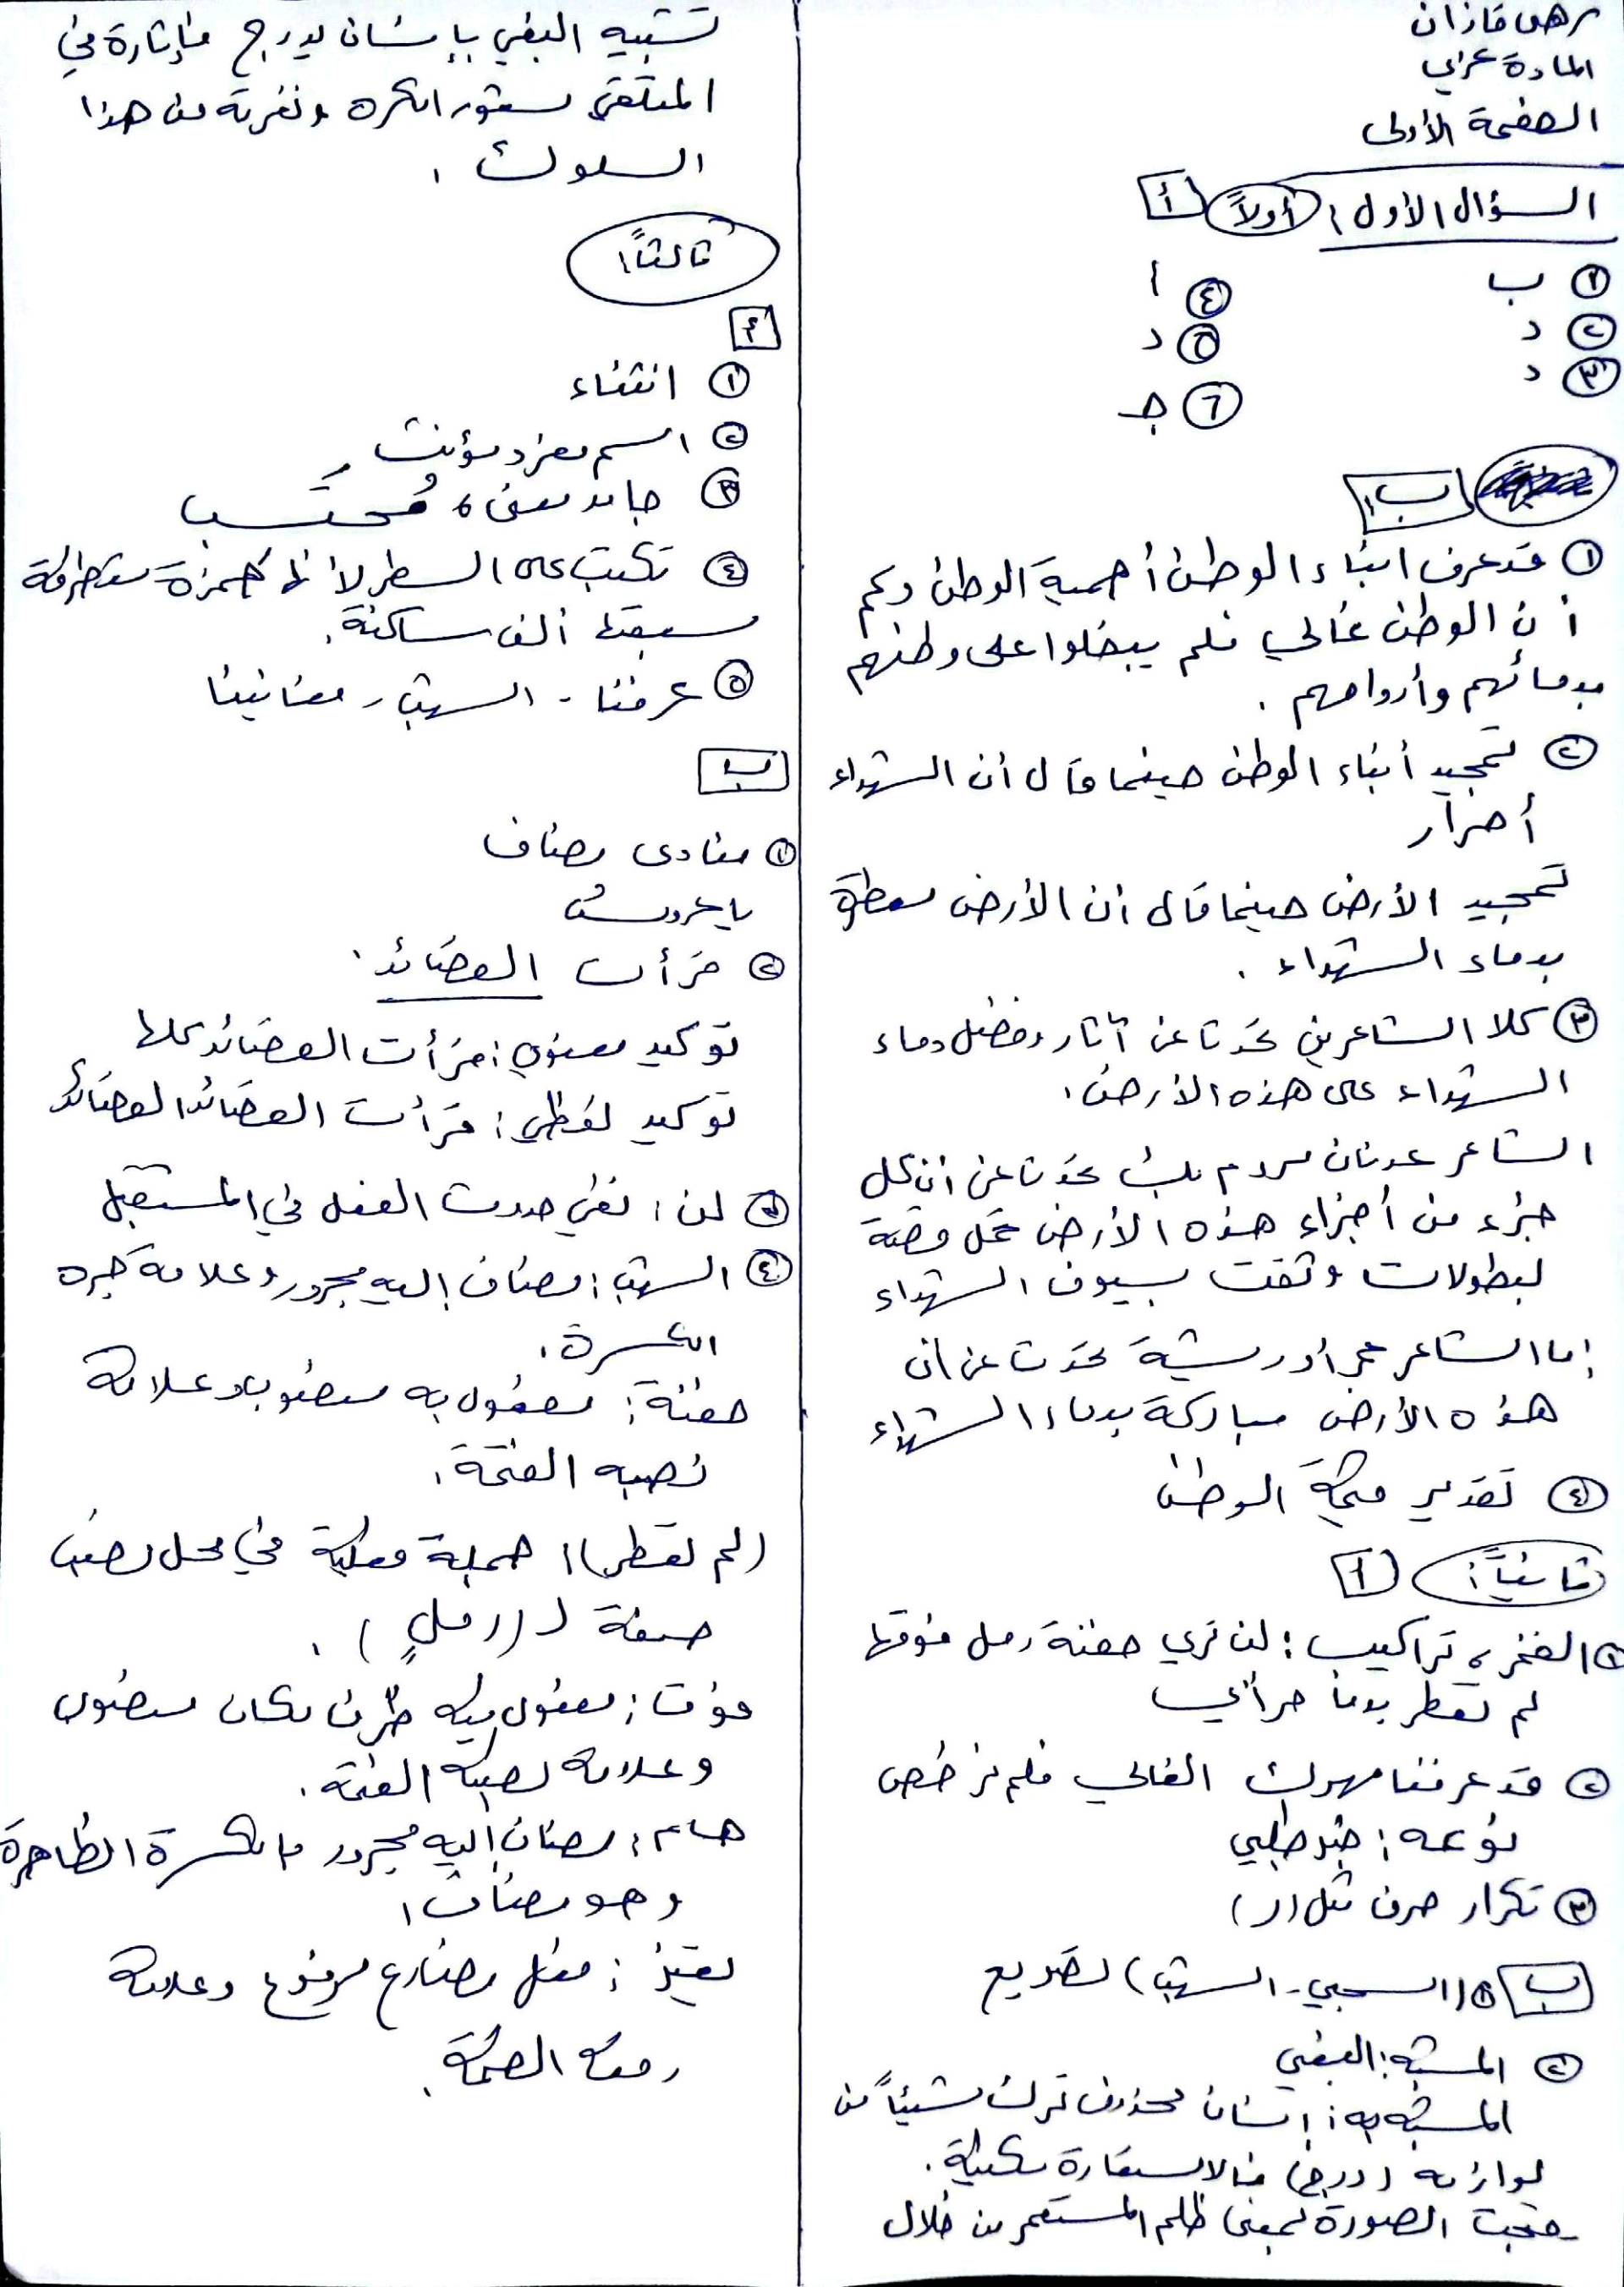 المادة عربي
الصفحة الأولى
السؤال الأول: أولاً أ
١ ب
٢ د
٣ د
٤ أ
٥ د
٦ جـ
ب
١ قد عرف ابناء الوطن أهمية الوطن وكم
أن الوطن غالي فلم يبخلوا على وطنهم
بدمائهم وأرواحهم .
٢ تمجيد أبناء الوطن حينما قال أن الشهداء
أحرار
تمجيد الأرض حينما قال أن الأرض معطرة
بدماء الشهداء .
٣ كلا الشاعرين تحدثا عن آثار وفضل دماء
الشهداء على هذه الأرض .
الشاعر عدنان مردم بك تحدث عن أن كل
جزء من أجزاء هذه الأرض تحمل قصة
لبطولات وثقت بسيوف الشهداء
إما الشاعر عمر أبو ريشة تحدث عن أن
هذه الأرض مباركة بدماء الشهداء
٤ تقدير قيمة الوطن
ثانياً : أ
١ الفخر ، تراكيب : لن تري حفنة رمل فوقها
لم تعطر بدما حر أبي
٢ قد عرفنا مهرك الغالي فلم نرخص
نوعه : خبر طلبي
٣ تكرار حرف مثل (ر)
ب ١ (السحبِ - الشهبِ) تصريع
٢ المشبه : البغي
المشبه به : إنسان محذوف ترك شيئاً من
لوازمه (درج) فالاستعارة مكنية .
قبحت الصورة لمعنى ظلم المستعمر من خلال
تشبيه البغي بإنسان يدرج فإثارة في
المتلقي شعور الكره ونفرته من هذا
السلوك .
ثالثاً :
أ
١ انتشاء
٢ اسم مفرد مؤنث
٣ جامد معنى ، مُحتَسب
٤ تكتب على السطر لأنها همزة متطرفة
سبقها ألف ساكنة .
٥ عرفنا - الشهب - مغانينا
ب
١ منادى مضاف
يا عروسُ
٢ قرأت القصائد .
توكيد معنوي : قرأت القصائد كلها
توكيد لفظي : قرأت القصائد القصائد
٣ لن : نفي حدوث الفعل في المستقبل
٤ الشهب : مضاف إليه مجرور وعلامة جره
الكسرة .
حفنة : مفعول به منصوب وعلامة
نصبه الفتحة .
(لم تعطر) : جملة فعلية في محل نصب
صفة لـ (رملٍ) .
فوق : مفعول فيه ظرف مكان منصوب
وعلامة نصبه الفتحة .
هام : مضاف إليه مجرور بالكسرة الظاهرة
وهو مضاف .
فعل مضارع مرفوع وعلامة
رفعه الضمة .